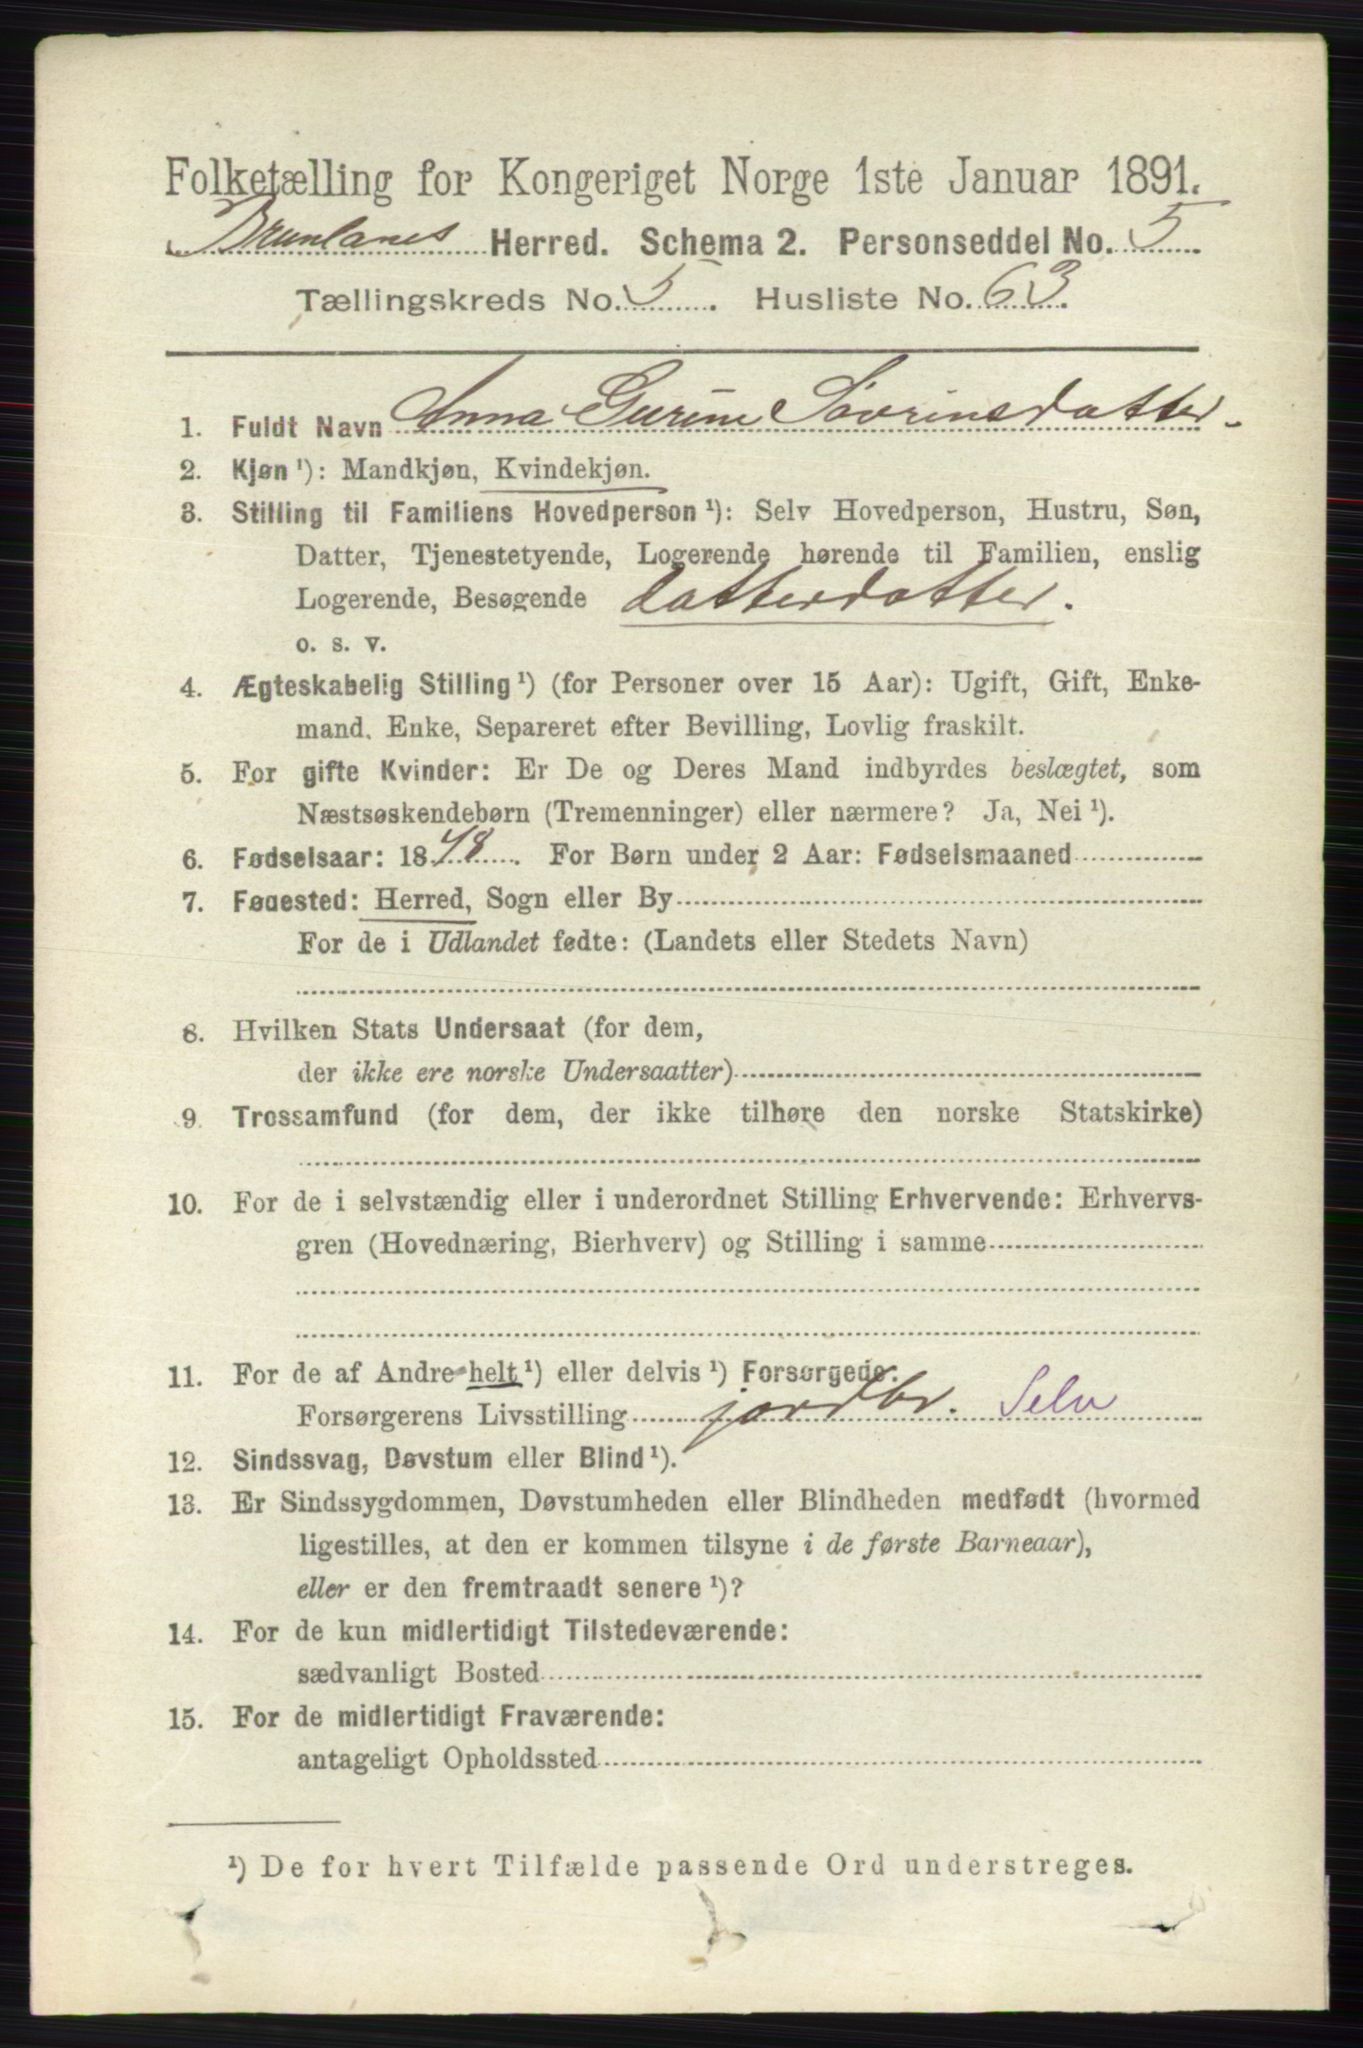 Folketælling for Kongeriget Norge 1ste Januar 1891.
Brunlanes Herred. Schema 2. Personseddel No. 5
Tællingskreds No. 5. Husliste No. 63.
1. Fuldt Navn Anna Gurine Søvrinsdatter.
2. Kjøn ¹): Mandkjøn, Kvindekjøn.
3. Stilling til Familiens Hovedperson ¹): Selv Hovedperson, Hustru, Søn,
Datter, Tjenestetyende, Logerende hørende til Familien, enslig
Logerende, Besøgende datterdatter.
o. s. v.
4. Ægteskabelig Stilling ¹) (for Personer over 15 Aar): Ugift, Gift, Enke-
mand, Enke, Separeret efter Bevilling, Lovlig fraskilt.
5. For gifte Kvinder: Er De og Deres Mand indbyrdes beslægtet, som
Næstsøskendebørn (Tremenninger) eller nærmere? Ja, Nei ¹).
6. Fødselsaar: 1848. For Børn under 2 Aar: Fødselsmaaned
7. Fødested: Herred, Sogn eller By
For de i Udlandet fødte: (Landets eller Stedets Navn)
8. Hvilken Stats Undersaat (for dem,
der ikke ere norske Undersaatter)
9. Trossamfund (for dem, der ikke tilhøre den norske Statskirke)
10. For de i selvstændig eller i underordnet Stilling Erhvervende: Erhvervs-
gren (Hovednæring, Bierhverv) og Stilling i samme
11. For de af Andre helt ¹) eller delvis ¹) Forsørgede:
Forsørgerens Livsstilling jordbr. Selv
12. Sindssvag, Døvstum eller Blind ¹).
13. Er Sindssygdommen, Døvstumheden eller Blindheden medfødt (hvormed
ligestilles, at den er kommen tilsyne i de første Barneaar),
eller er den fremtraadt senere ¹)?
14. For de kun midlertidigt Tilstedeværende:
sædvanligt Bosted
15. For de midlertidigt Fraværende:
antageligt Opholdssted
¹) De for hvert Tilfælde passende Ord understreges.